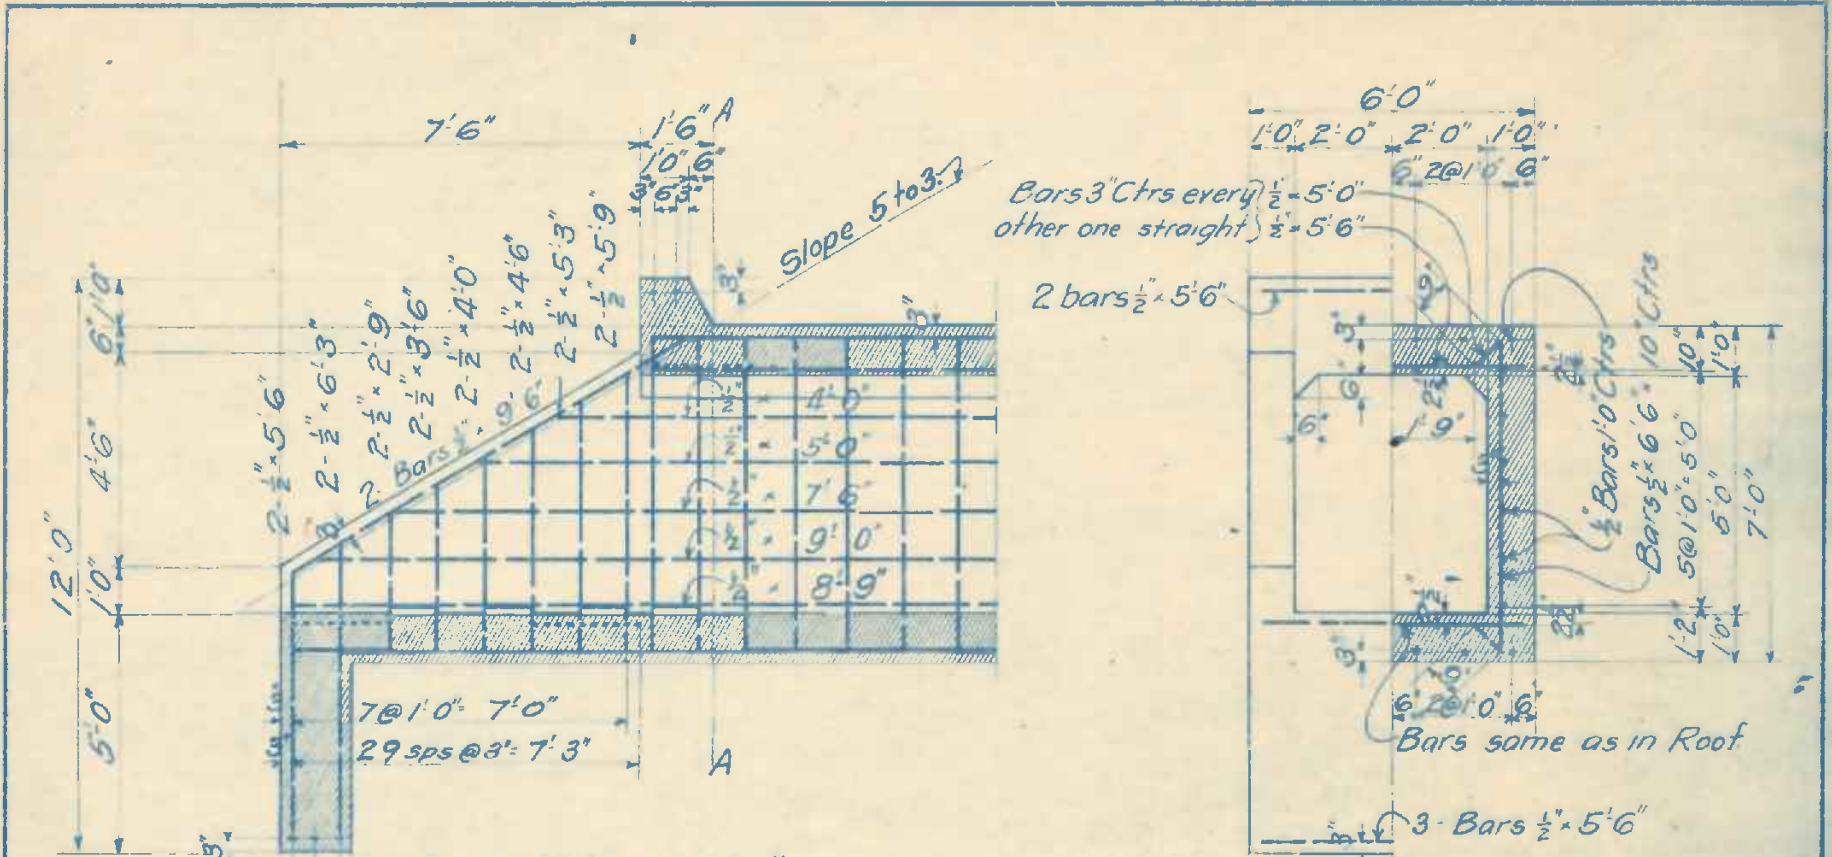 7'-6"
1'-6"
A
1'0"
6"
3"
6"
3"
Slope 5 to 3.
3"
3"
12'-0"
1'0"
6"
4'-6"
1'-0"
5'-0"
2-½"×5'6"
2-½"×6'-3"
2-½"×2'-9"
2-½"×3'-6"
2-½"×4'-0"
2-½"×4'-6"
2-½"×5'-3"
2-½"×5'-9"
2 Bars ½" × 9'-6"
3"
½" × 4'-0"
½" × 5'-0"
½" × 7'-6"
½" × 9'-0"
½" × 8'-9"
7@1'-0"= 7'-0"
29 sps @3"= 7'-3"
A
3"
6'-0"
1'-0" 2'-0" 2'-0" 1'-0"
6" 2@1'-0" 6"
Bars 3" Ctrs every ½"×5'-0"
other one straight ½"×5'-6"
2 bars ½"×5'-6"
3"
6"
6"
2½"
1'-9"
2½"
3"
½" Bars 1'-0" Ctrs
Bars ½"×6'-6" 10" Ctrs
10"
1'-0"
5@1'-0"=5'-0"
5'-0"
7'-0"
1'-2"
1'-0"
6" 2@1'-0" 6"
Bars same as in Roof
3 - Bars ½"×5'-6"
3"